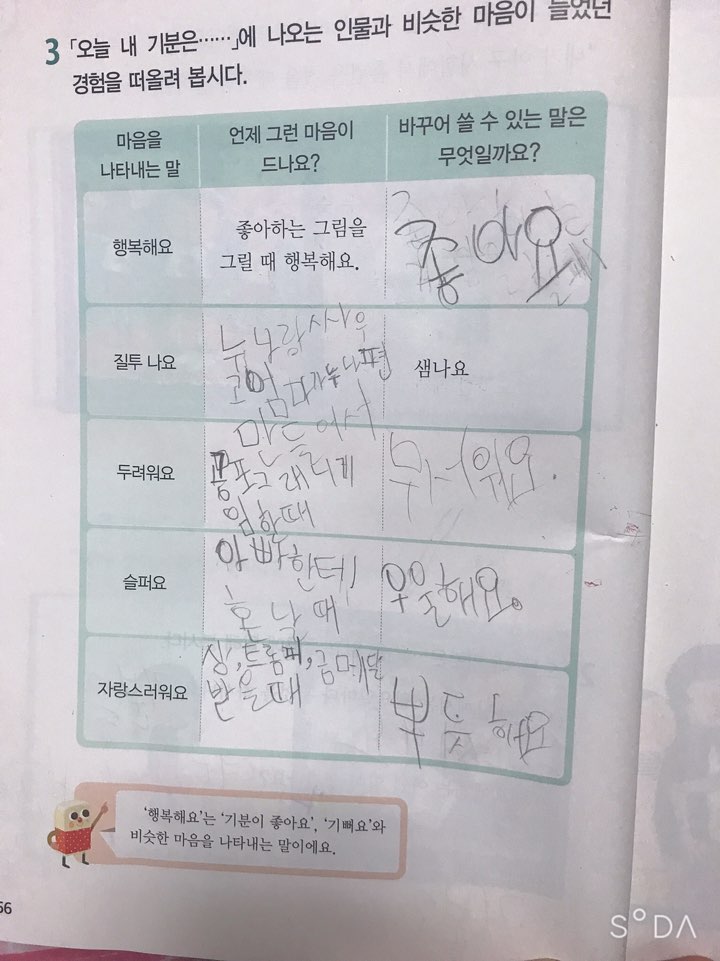 3 「오늘 내 기분은……」에 나오는 인물과 비슷한 마음이 들었던
경험을 떠올려 봅시다.
마음을
나타내는 말
언제 그런 마음이
드나요?
바꾸어 쓸 수 있는 말은
무엇일까요?
행복해요
좋아하는 그림을
그릴 때 행복해요.
좋아요
질투 나요
누나랑 싸우
고 엄마가 누나 편
만 들어서
샘나요
두려워요
공포 그래니 게
임 할 때
무서워요.
슬퍼요
아빠한테
혼 낙 때
우울해요。
자랑스러워요
상, 트롬피, 금메달
받을 때
뿌듯해요
'행복해요'는 '기분이 좋아요', '기뻐요'와
비슷한 마음을 나타내는 말이에요.
56
SODA